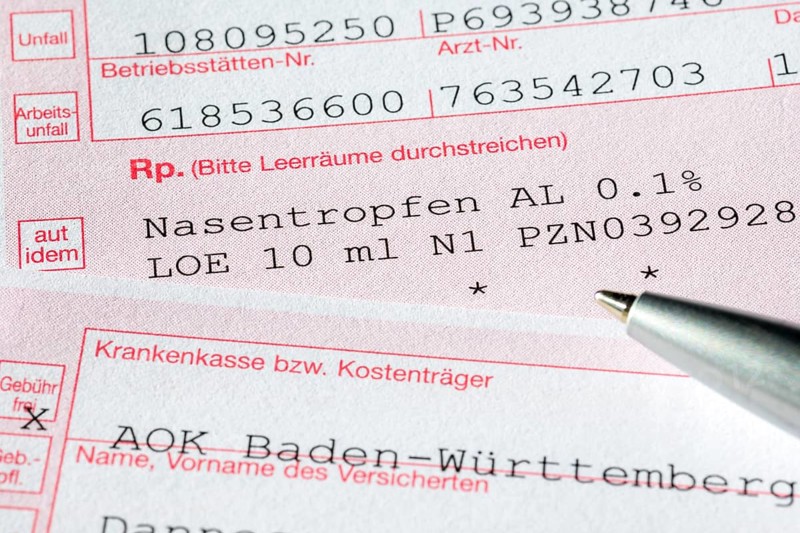 Unfall
108095250 P693938746
Betriebsstätten-Nr. Arzt-Nr. Da
618536600 763542703 1
Arbeits-
unfall
Rp. (Bitte Leerräume durchstreichen)
Nasentropfen AL 0.1%
aut
idem
LOE 10 ml N1 PZN0392928
* *
Krankenkasse bzw. Kostenträger
Gebühr
frei
X
AOK Baden-Württemberg
Geb.-
pfl.
Name, Vorname des Versicherten